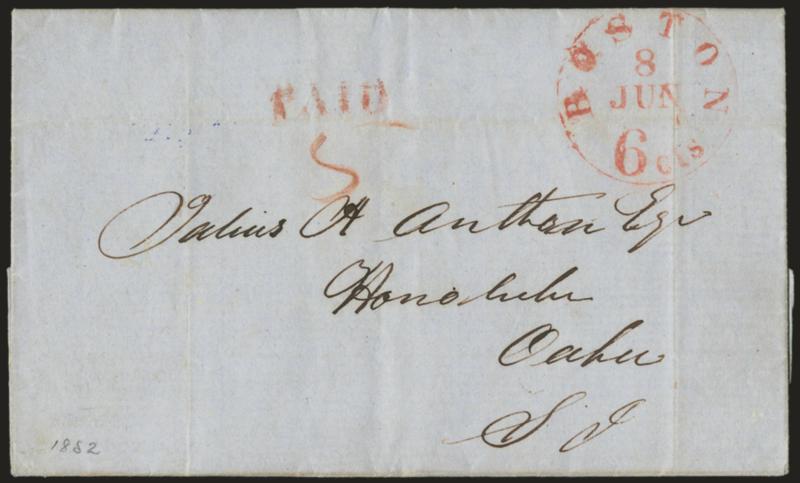 BOSTON
8
JUN
6 cts
PAID
5
Julius A Anthon Esqr
Honolulu
Oahu
S I
1852